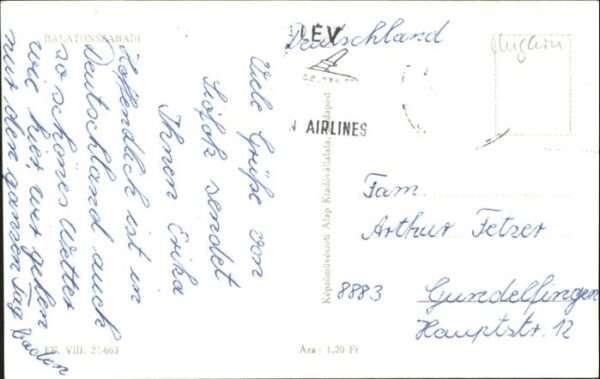 BALATONSZABADI
Viele Grüße von
Siófok sendet
Ihnen Erika
Hoffendlich ist in
Deutschland auch
so schönes Wetter
wie hier, wir gehen
nur den ganzen Tag baden
Képzőművészeti Alap Kiadóvállalata, Budapest
Ára: 1,20 Ft
LEV
AIRLINES
Deutschland
Fam.
Arthur Fetzer
8883 Gundelfingen
Hauptstr. 12